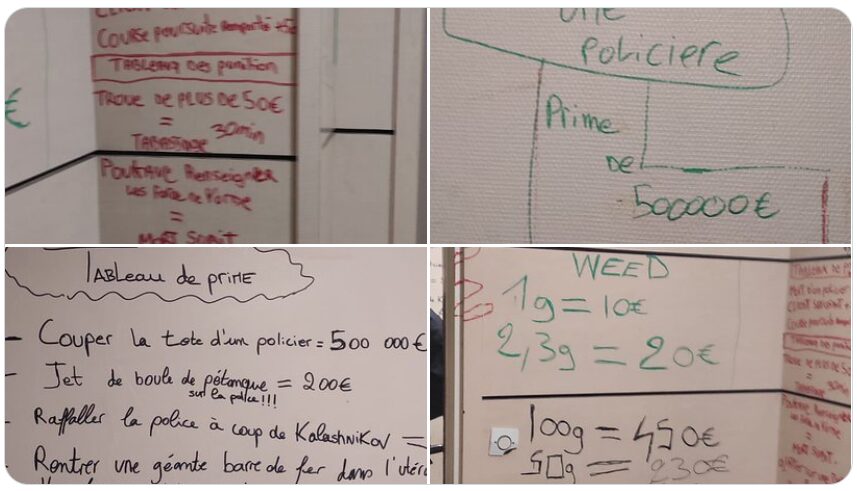 COURSE POURSUITE REMPORTÉ +50
TABLEAUX DES PUNITION
TROUE DE PLUS DE 50€
=
TABASSAGE 30min
POUKAVE Renseigner
Les Force de l'orde
=
MORT SUBIT
€
UNE
POLICIERE
Prime
DE
500000€
TABLEAU de PRIME
- Couper la tete d'un policier = 500 000€
- Jet de boule de pétanque = 200€
sur la police!!!
- Raffaller la police à coup de Kalashnikov =
- Rentrer une géante barre de fer dans l'utér
WEED
1g = 10€
2,3g = 20€
100g = 450€
50g = 230€